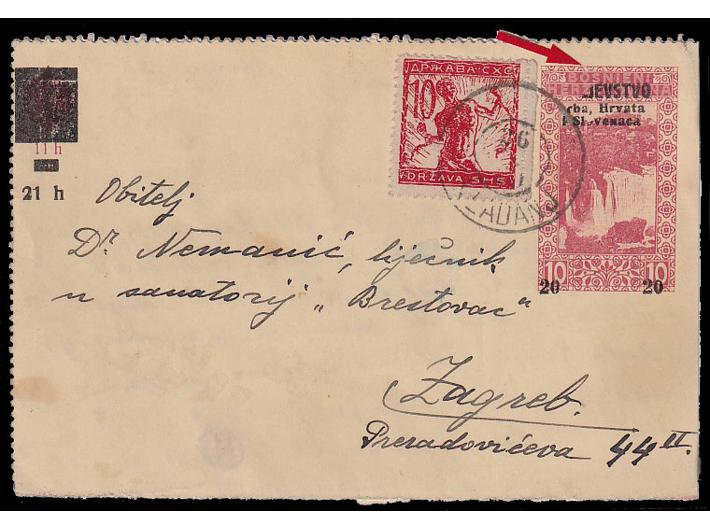 ДРЖАВА С.Х.С.
10
DRŽAVA SHS
BOSNIEN I
HERZEGOVINA
JEVSTVO
rba, Hrvata
i Slovenaca
10 10
20 20
11 h
21 h
Obitelj
Dr Nemanić, liječnik
u sanatorij „Brestovac“
Zagreb.
Preradovićeva 44 II.